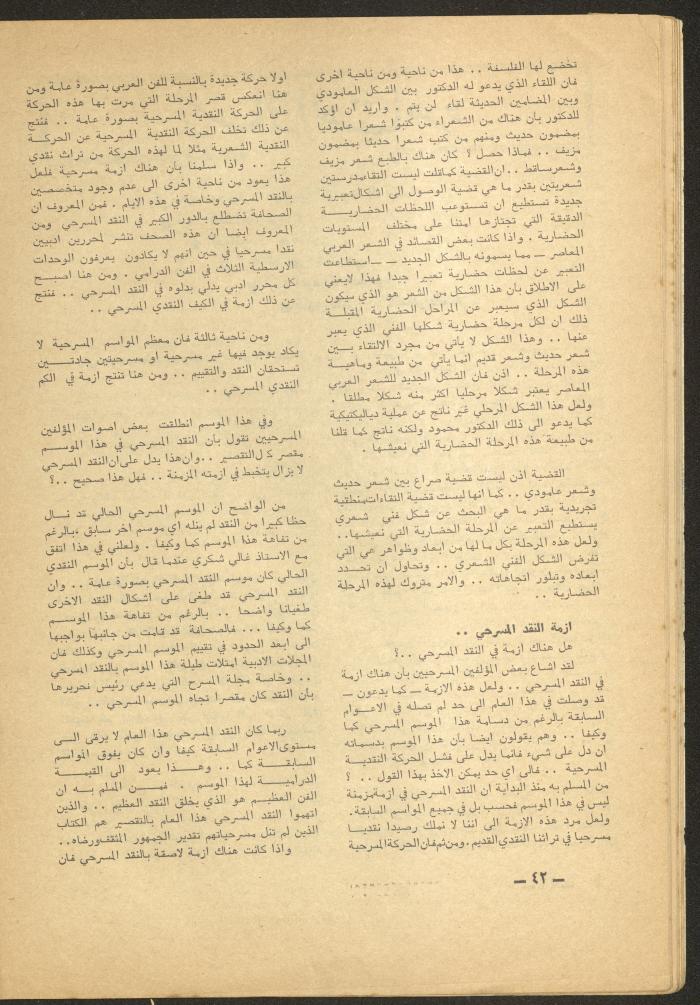 تخضع لها الفلسفة .. هذا من ناحية ومن ناحية اخرى
فان اللقاء الذي يدعو له الدكتور بين الشكل العامودي
وبين المضامين الحديثة لقاء لن يتم . واريد ان اؤكد
للدكتور بأن هناك من الشعراء من كتبوا شعرا عاموديا
بمضمون حديث ومنهم من كتب شعرا حديثا بمضمون
مزيف .. فماذا حصل ؟ كان هناك بالطبع شعر مزيف
وشعر ساقط .. ان القضية كما قلت ليست التقاء مدرستين
شعريتين بقدر ما هي قضية الوصول الى اشكال تعبيرية
جديدة تستطيع ان تستوعب اللحظات الحضاريــــة
الدقيقة التي تجتازها امتنا على مختلف المستويات
الحضارية . واذا كانت بعض القصائد في الشعر العربي
المعاصر ــ مما يسمونه بالشكل الجديد ــ استطاعت
التعبير عن لحظات حضارية تعبيرا جيدا فهذا لايعني
على الاطلاق بأن هذا الشكل من الشعر هو الذي سيكون
الشكل الذي سيعبر عن المراحل الحضارية المقبلــة
ذلك ان لكل مرحلة حضارية شكلها الفني الذي يعبر
عنها .. وهذا الشكل لا يأتي من مجرد الالتقاء بـــين
شعر حديث وشعر قديم انما يأتي من طبيعة وماهيــة
هذه المرحلة .. اذن فان الشكل الجديد للشعر العربي
المعاصر يعتبر شكلا مرحليا اكثر منه شكلا مطلقا .
ولعل هذا الشكل المرحلي غير ناتج عن عملية ديالكتيكية
كما يدعو الى ذلك الدكتور محمود ولكنه ناتج كما قلنا
من طبيعة هذه المرحلة الحضارية التي نعيشها .
القضية اذن ليست قضية صراع بين شعر حديث
وشعر عامودي .. كما انها ليست قضية التقاءات منطقية
تجريدية بقدر ما هي البحث عن شكل فني شعري
يستطيع التعبير عن المرحلة الحضارية التي نعيشها..
ولعل هذه المرحلة بكل ما لها من ابعاد وظواهر هي التي
تفرض الشكل الفني الشعري .. وتحاول ان تحــدد
ابعاده وتبلور اتجاهاته .. والامر متروك لهذه المرحلة
الحضارية ..
ازمة النقد المسرحي ..
هل هناك ازمة في النقد المسرحي ..؟
لقد اشاع بعض المؤلفين المسرحيين بأن هناك ازمة
في النقد المسرحي .. ولعل هذه الازمة ــ كما يدعون ــ
قد وصلت في هذا العام الى حد لم تصله في الاعــوام
السابقة بالرغم من دسامة هذا الموسم المسرحي كما
وكيفا .. وهم يقولون ايضا بأن هذا الموسم بدسماته
ان دل على شيء فانما يدل على فشل الحركة النقديــة
المسرحية .. فالى اي حد يمكن الاخذ بهذا القول .. ؟
من المسلم به منذ البداية ان النقد المسرحي في ازمة مزمنة
ليس في هذا الموسم فحسب بل في جميع المواسم السابقة.
ولعل مرد هذه الازمة الى اننا لا نملك رصيدا نقديــا
مسرحيا في تراثنا النقدي القديم . ومن ثم فان الحركة المسرحية
اولا حركة جديدة بالنسبة للفن العربي بصورة عامة ومن
هنا انعكس قصر المرحلة التي مرت بها هذه الحركة
على الحركة النقدية المسرحية بصورة عامة .. فنتج
عن ذلك تخلف الحركة النقدية المسرحية عن الحركــة
النقدية الشعرية مثلا لما لهذه الحركة من تراث نقدي
كبير .. واذا سلمنا بأن هناك ازمة مسرحية فلعل
هذا يعود من ناحية اخرى الى عدم وجود متخصصين
بالنقد المسرحي وخاصة في هذه الايام . فمن المعروف ان
الصحافة تضطلع بالدور الكبير في النقد المسرحي ومن
المعروف ايضا ان هذه الصحف تنشر لمحررين ادبيين
نقدا مسرحيا في حين انهم لا يكادون يعرفون الوحدات
الارسطية الثلاث في الفن الدرامي . ومن هنا اصبــح
كل محرر ادبي يدلي بدلوه في النقد المسرحي .. فنتج
عن ذلك ازمة في الكيف النقدي المسرحي ..
ومن ناحية ثالثة فان معظم المواسم المسرحية لا
يكاد يوجد فيها غير مسرحية او مسرحيتين جادتــــين
تستحقان النقد والتقييم .. ومن هنا تنتج ازمة في الكم
النقدي المسرحي ..
وفي هذا الموسم انطلقت بعض اصوات المؤلفين
المسرحيين تقول بأن النقد المسرحي في هذا الموســم
مقصر كل التقصير .. وان هذا يدل على ان النقد المسرحي
لا يزال يتخبط في ازمته المزمنة .. فهل هذا صحيح ..؟
من الواضح ان الموسم المسرحي الحالي قد نــال
حظا كبيرا من النقد لم ينله اي موسم اخر سابق ، بالرغم
من تفاهة هذا الموسم كما وكيفا . ولعلني في هذا اتفق
مع الاستاذ غالي شكري عندما قال بأن الموسم النقدي
الحالي كان موسم النقد المسرحي بصورة عامة .. وان
النقد المسرحي قد طغى على اشكال النقد الاخرى
طغيانا واضحا .. بالرغم من تفاهة هذا الموســم
كما وكيفا ... فالصحافة قد قامت من جانبها بواجبها
الى ابعد الحدود في تقييم الموسم المسرحي وكذلك فان
المجلات الادبية امتلات طيلة هذا الموسم بالنقد المسرحي
.. وخاصة مجلة المسرح التي يدعي رئيس تحريرها
بأن النقد كان مقصرا تجاه الموسم المسرحي ..
ربما كان النقد المسرحي هذا العام لا يرقى الــى
مستوى الاعوام السابقة كيفا وان كان يفوق المواسم
السابقــة كما .. وهــذا يعود الى القيمـــة
الدراميــة لهذا الموسم . فمـــن المسلم بــه ان
الفن العظيــم هو الذي يخلق النقد العظيم .. والذين
اتهموا النقد المسرحي هذا العام بالتقصير هم الكتاب
الذين لم تنل مسرحياتهم تقدير الجمهور المثقف ورضاه..
واذا كانت هناك ازمة لاصقة بالنقد المسرحي فان
ــ ٤٢ ــ